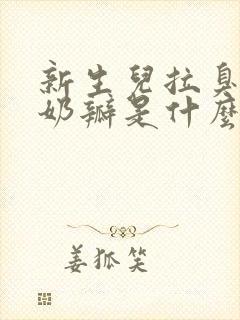 新生兒拉臭
奶瓣是什麼
姜狐笑